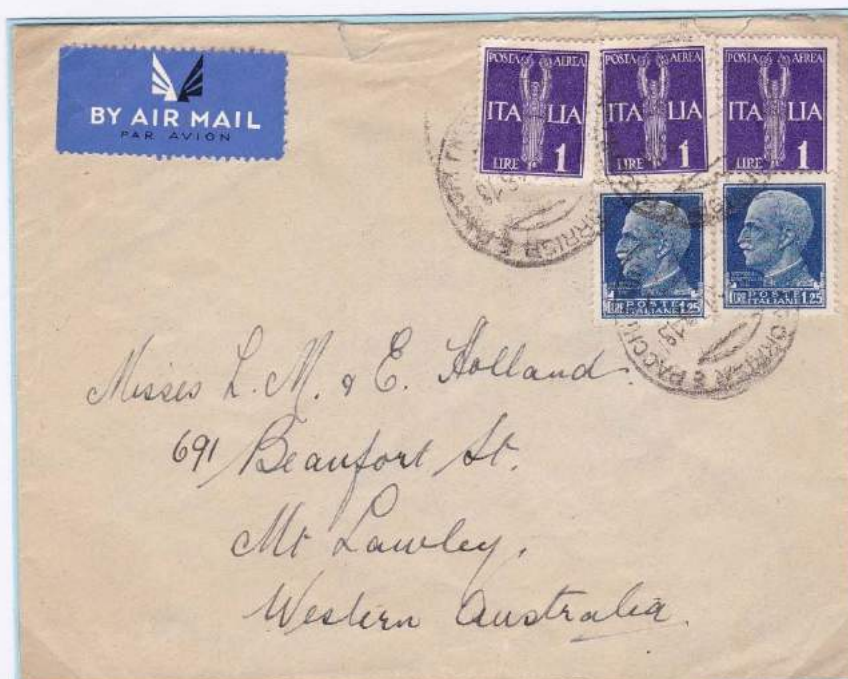 BY AIR MAIL
PAR AVION
POSTA AEREA
ITALIA
LIRE 1
POSTA AEREA
ITALIA
LIRE 1
POSTA AEREA
ITALIA
LIRE 1
LIRE POSTE ITALIANE 1.25
LIRE POSTE ITALIANE 1.25
Misses L. M. & E. Holland.
691 Beaufort St.
Mt Lawley.
Western Australia.